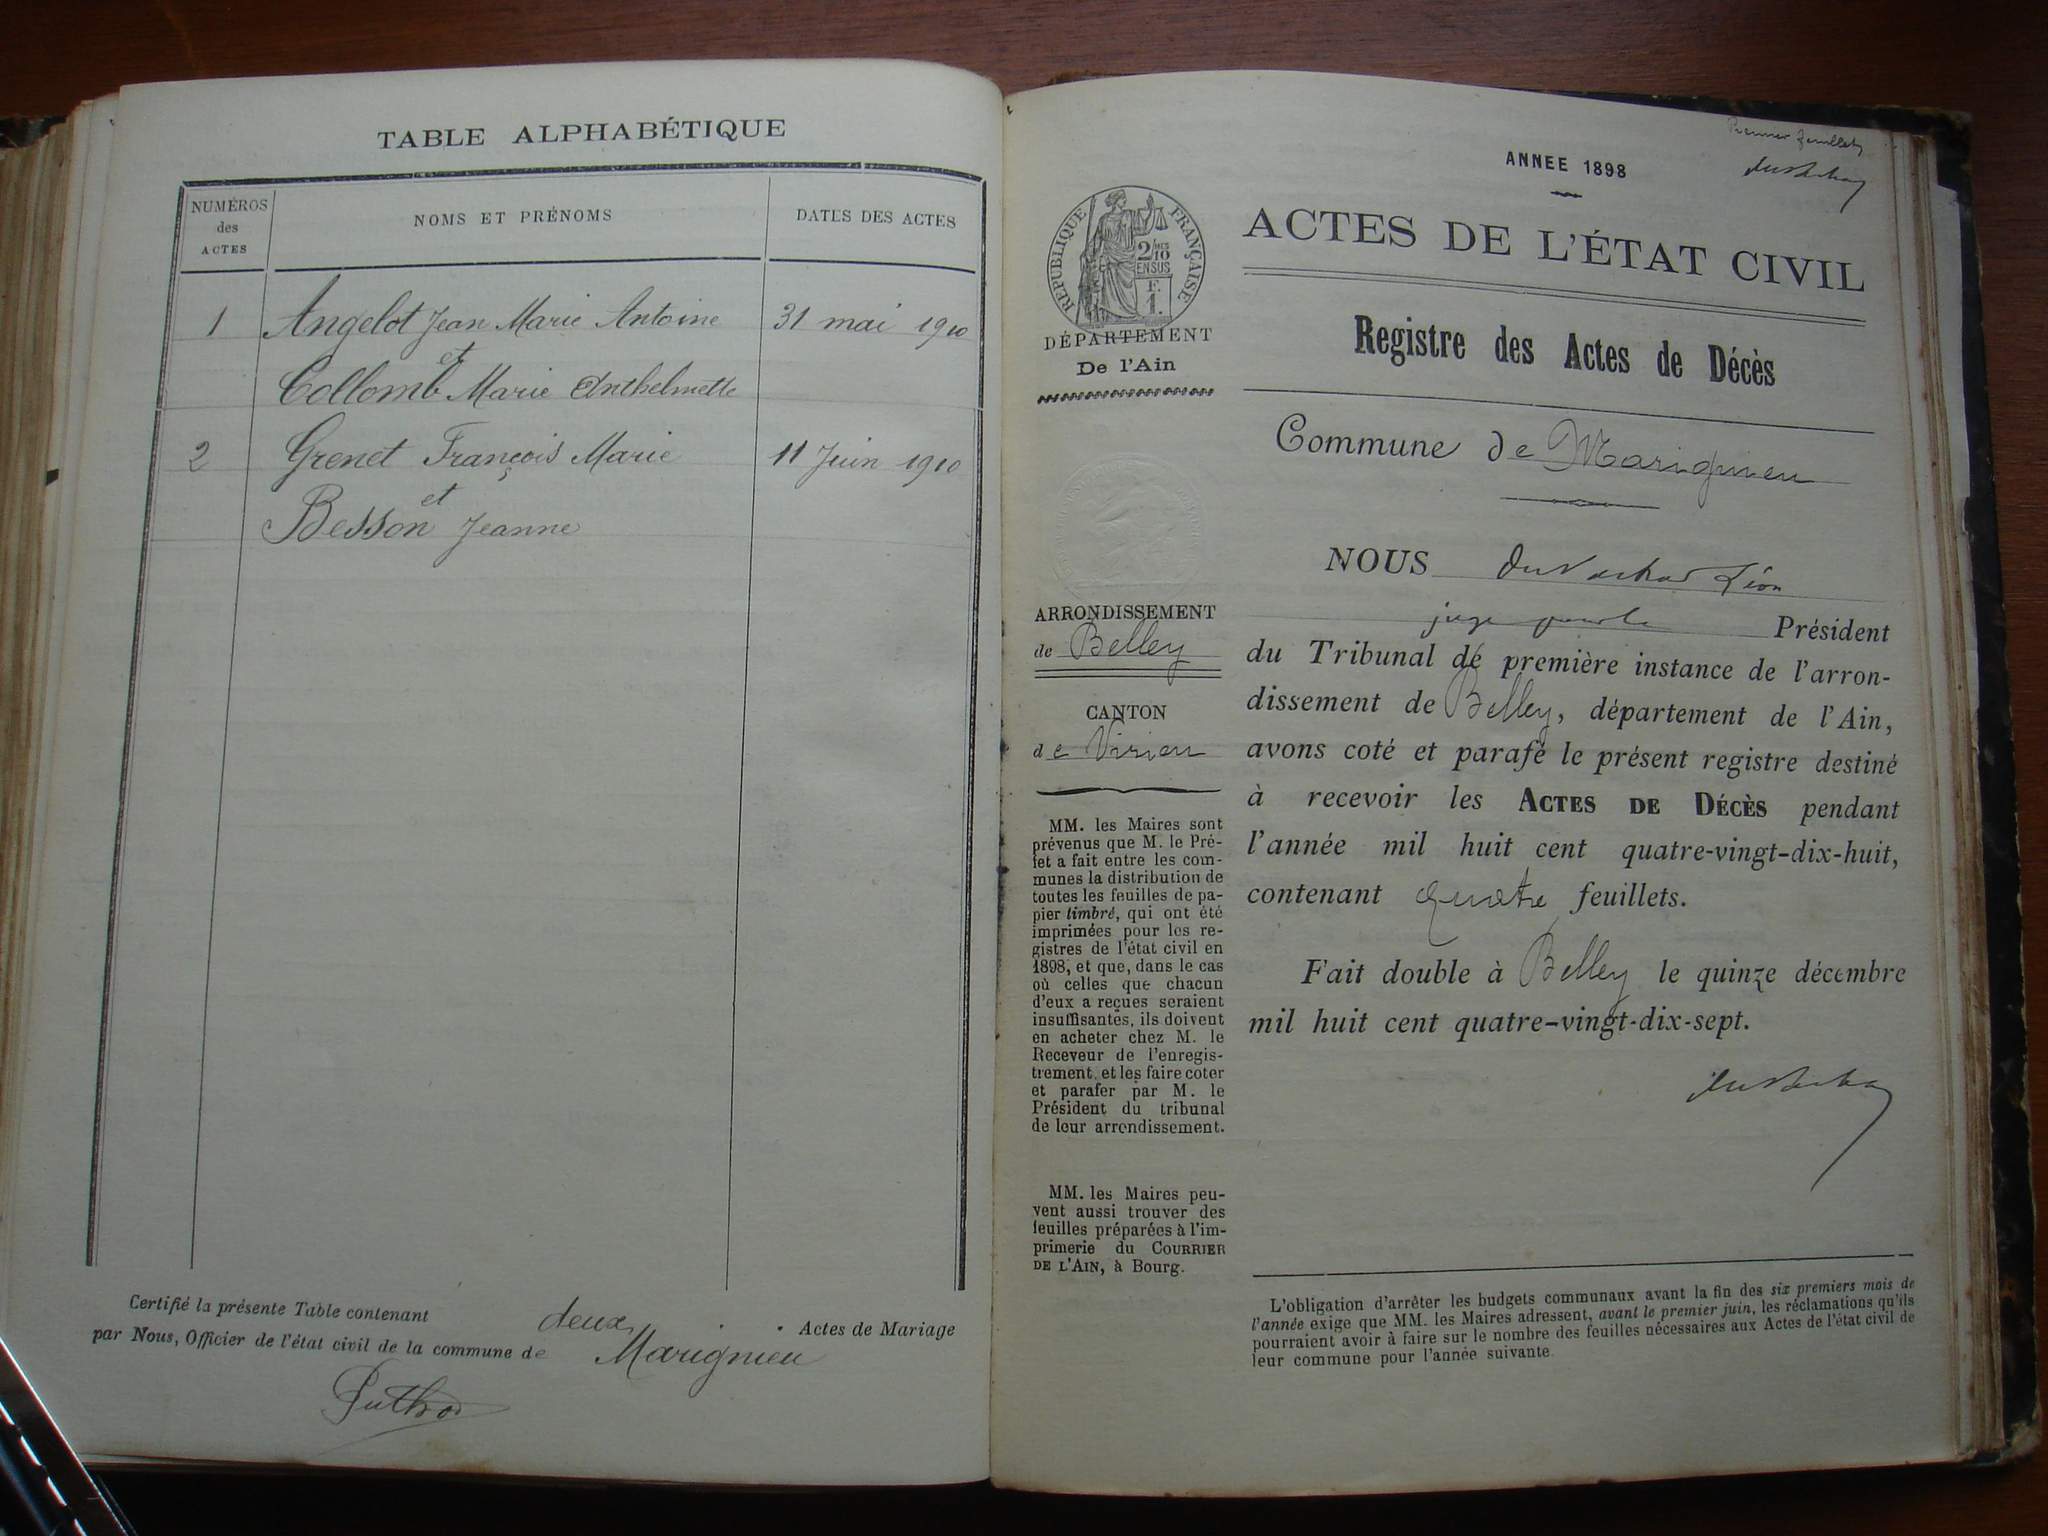 TABLE ALPHABÉTIQUE
NUMÉROS
des
ACTES
NOMS ET PRÉNOMS
DATES DES ACTES
1 Angelot Jean Marie Antoine 31 mai 1910
et
Collomb Marie Anthelmette
2 Grenet François Marie 11 Juin 1910
et
Besson Jeanne
Certifié la présente Table contenant deux Actes de Mariage
par Nous, Officier de l'état civil de la commune de Marignieu
Puthod
Premier feuillet
ANNEE 1898
RÉPUBLIQUE FRANÇAISE
2/10
EN SUS
F.
1.
DÉPARTEMENT
De l'Ain
ARRONDISSEMENT
de Belley
CANTON
de Virieu
MM. les Maires sont
prévenus que M. le Pré-
fet a fait entre les com-
munes la distribution de
toutes les feuilles de pa-
pier timbré, qui ont été
imprimées pour les re-
gistres de l'état civil en
1898, et que, dans le cas
où celles que chacun
d'eux a reçues seraient
insuffisantes, ils doivent
en acheter chez M. le
Receveur de l'enregis-
trement, et les faire coter
et parafer par M. le
Président du tribunal
de leur arrondissement.
MM. les Maires peu-
vent aussi trouver des
feuilles préparées à l'im-
primerie du COURRIER
DE L'AIN, à Bourg.
ACTES DE L'ÉTAT CIVIL
Registre des Actes de Décès
Commune de Marignieu
NOUS Léon
juge Président
du Tribunal de première instance de l'arron-
dissement de Belley, département de l'Ain,
avons coté et parafé le présent registre destiné
à recevoir les ACTES DE DÉCÈS pendant
l'année mil huit cent quatre-vingt-dix-huit,
contenant quatre feuillets.
Fait double à Belley le quinze décembre
mil huit cent quatre-vingt-dix-sept.
L'obligation d'arrêter les budgets communaux avant la fin des six premiers mois de
l'année exige que MM. les Maires adressent, avant le premier juin, les réclamations qu'ils
pourraient avoir à faire sur le nombre des feuilles nécessaires aux Actes de l'état civil de
leur commune pour l'année suivante.